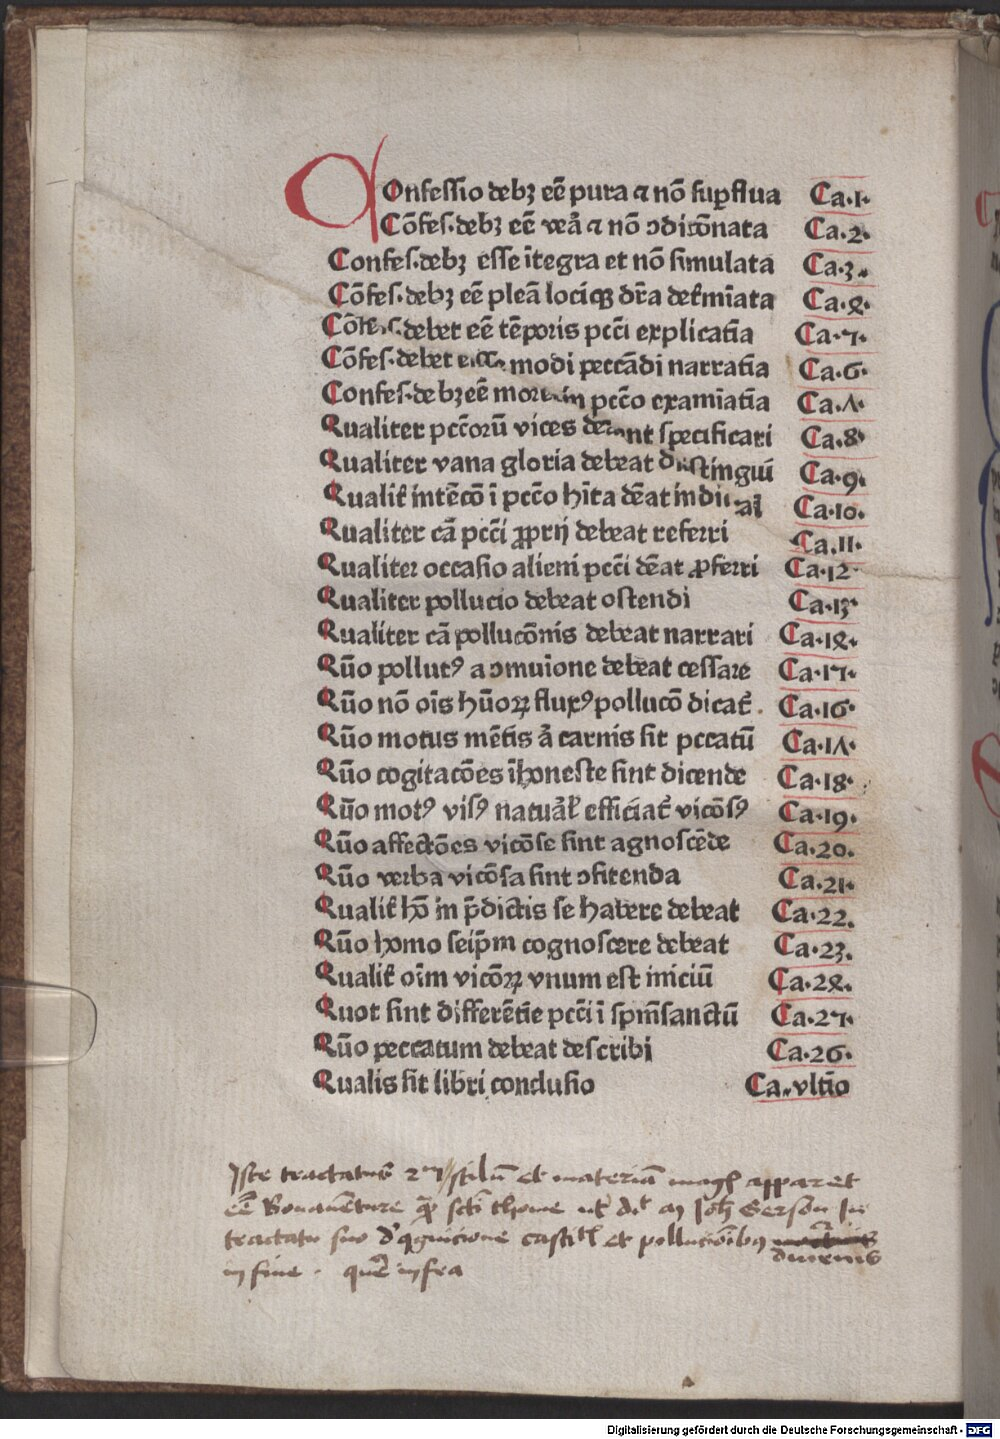 Onfessio debꝫ eē pura ⁊ nō suꝑflua Ca.1.
Cōfes.debꝫ eē veā ⁊ nō ↄdicōnata Ca.2.
Confes.debꝫ esse ītegra et nō simulata Ca.3.
Cōfes.debꝫ eē pleā lociqꝫ dr̄a det̄mīata Ca.4.
Cōfes.debet eē tēporis pcc̄i explicatīa Ca.5.
Cōfes.debet modi peccādi narratīa Ca.6.
Confes.debꝫ eē pcc̄o examīatīa Ca.7.
Qualiter pcc̄orū vices specificari Ca.8.
Qualiter vana gloria debeat distinguī Ca.9.
Qualit̄ intēcō ī pcc̄o hīta dēat Ca.10.
Qualiter cā pcc̄i ꝓprij debeat referri Ca.11.
Qualiter occasio alieni pcc̄i dēat ꝓferri Ca.12.
Qualiter pollucio debeat ostendi Ca.13.
Qualiter cā pollucōnis debeat narrari Ca.14.
Qūo pollutꝰ a ↄmuīone debeat cessare Ca.15.
Qūo nō oīs hūoꝝ fluxꝰ pollucō dicat̄. Ca.16.
Qūo motus mētis ā carnis sit pccatū Ca.17.
Qūo cogitacōes īhoneste sint dicende Ca.18.
Qūo motꝰ visꝰ natuāl̄ efficiat̄ vicōsꝰ Ca.19.
Qūo affectōes vicōse sint agnoscēde Ca.20.
Qūo verba vicōsa sint ↄfitenda Ca.21.
Qualit̄ hō in p̄dictis se habere debeat Ca.22.
Qūo homo seip̄m cognoscere debeat Ca.23.
Qualit̄ oīm vicōꝝ vnum est iniciū Ca.24.
Quot sint differētie pcc̄i ī spm̄sanctū Ca.25.
Qūo peccatum debeat describi Ca.26.
Qualis sit libri conclusio Ca.vltīo
Iste tractatus stilū et materiā magꝭ apparet
eē Bonauēture scti thome ut Joh Gerson in
tractatu suo castit et pollucionibꝫ
diurnis
in fine. infra
Digitalisierung gefördert durch die Deutsche Forschungsgemeinschaft - DFG